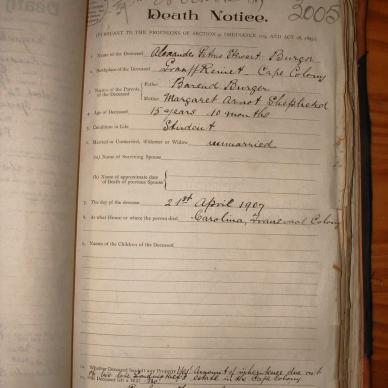 2005
Death Notice.
[PURSUANT TO THE PROVISIONS OF SECTION 9, ORDINANCE 104, AND ACT OF 1891].
1. Name of the Deceased Alexander Stewart Burger
2. Birthplace of the Deceased Graaff Reinet Cape Colony
3. Names of the Parents of the Deceased
Father Barend Burger
Mother Margaret Arnot Shepherd
4. Age of Deceased 15 years 10 months
5. Condition in Life Student
6. Married or Unmarried, Widower or Widow unmarried
(a) Name of Surviving Spouse
(b) Name of approximate date of Death of previous Spouse
7. The day of the decease 21st April 1907
8. At what House or where the person died Carolina, Transvaal Colony
9. Names of the Children of the Deceased
10. Whether Deceased has left any Property Yes Amount of inheritance due out
of his late Grandmother's estate in the Cape Colony
11. Deceased left a Will No.